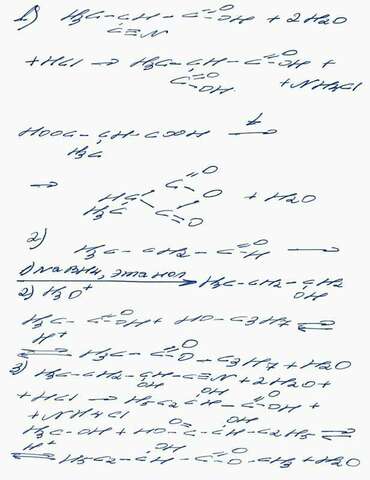 1) H3C-CH-C=O OH + 2H2O
C≡N
+HCl → H3C-CH-C=O OH +
C=O OH + NH4Cl
HOOC-CH-COOH t →
H3C
→ HC C=O O + H2O
H3C C=O
2) H3C-CH2-C=O H →
1) NaBH4, этанол → H3C-CH2-CH2
2) H3O+ OH
H3C-C=O OH + HO-C3H7 ⇌
H+
⇌ H3C-C=O O-C3H7 + H2O
3) H3C-CH2-CH-C≡N + 2H2O +
OH
+HCl → H5C2-CH-C=O OH +
OH
+ NH4Cl
H3C-OH + HO-C=O-CH-C2H5 ⇌
OH
H+
⇌ H5C2-CH-C=O O-CH3 + H2O
OH